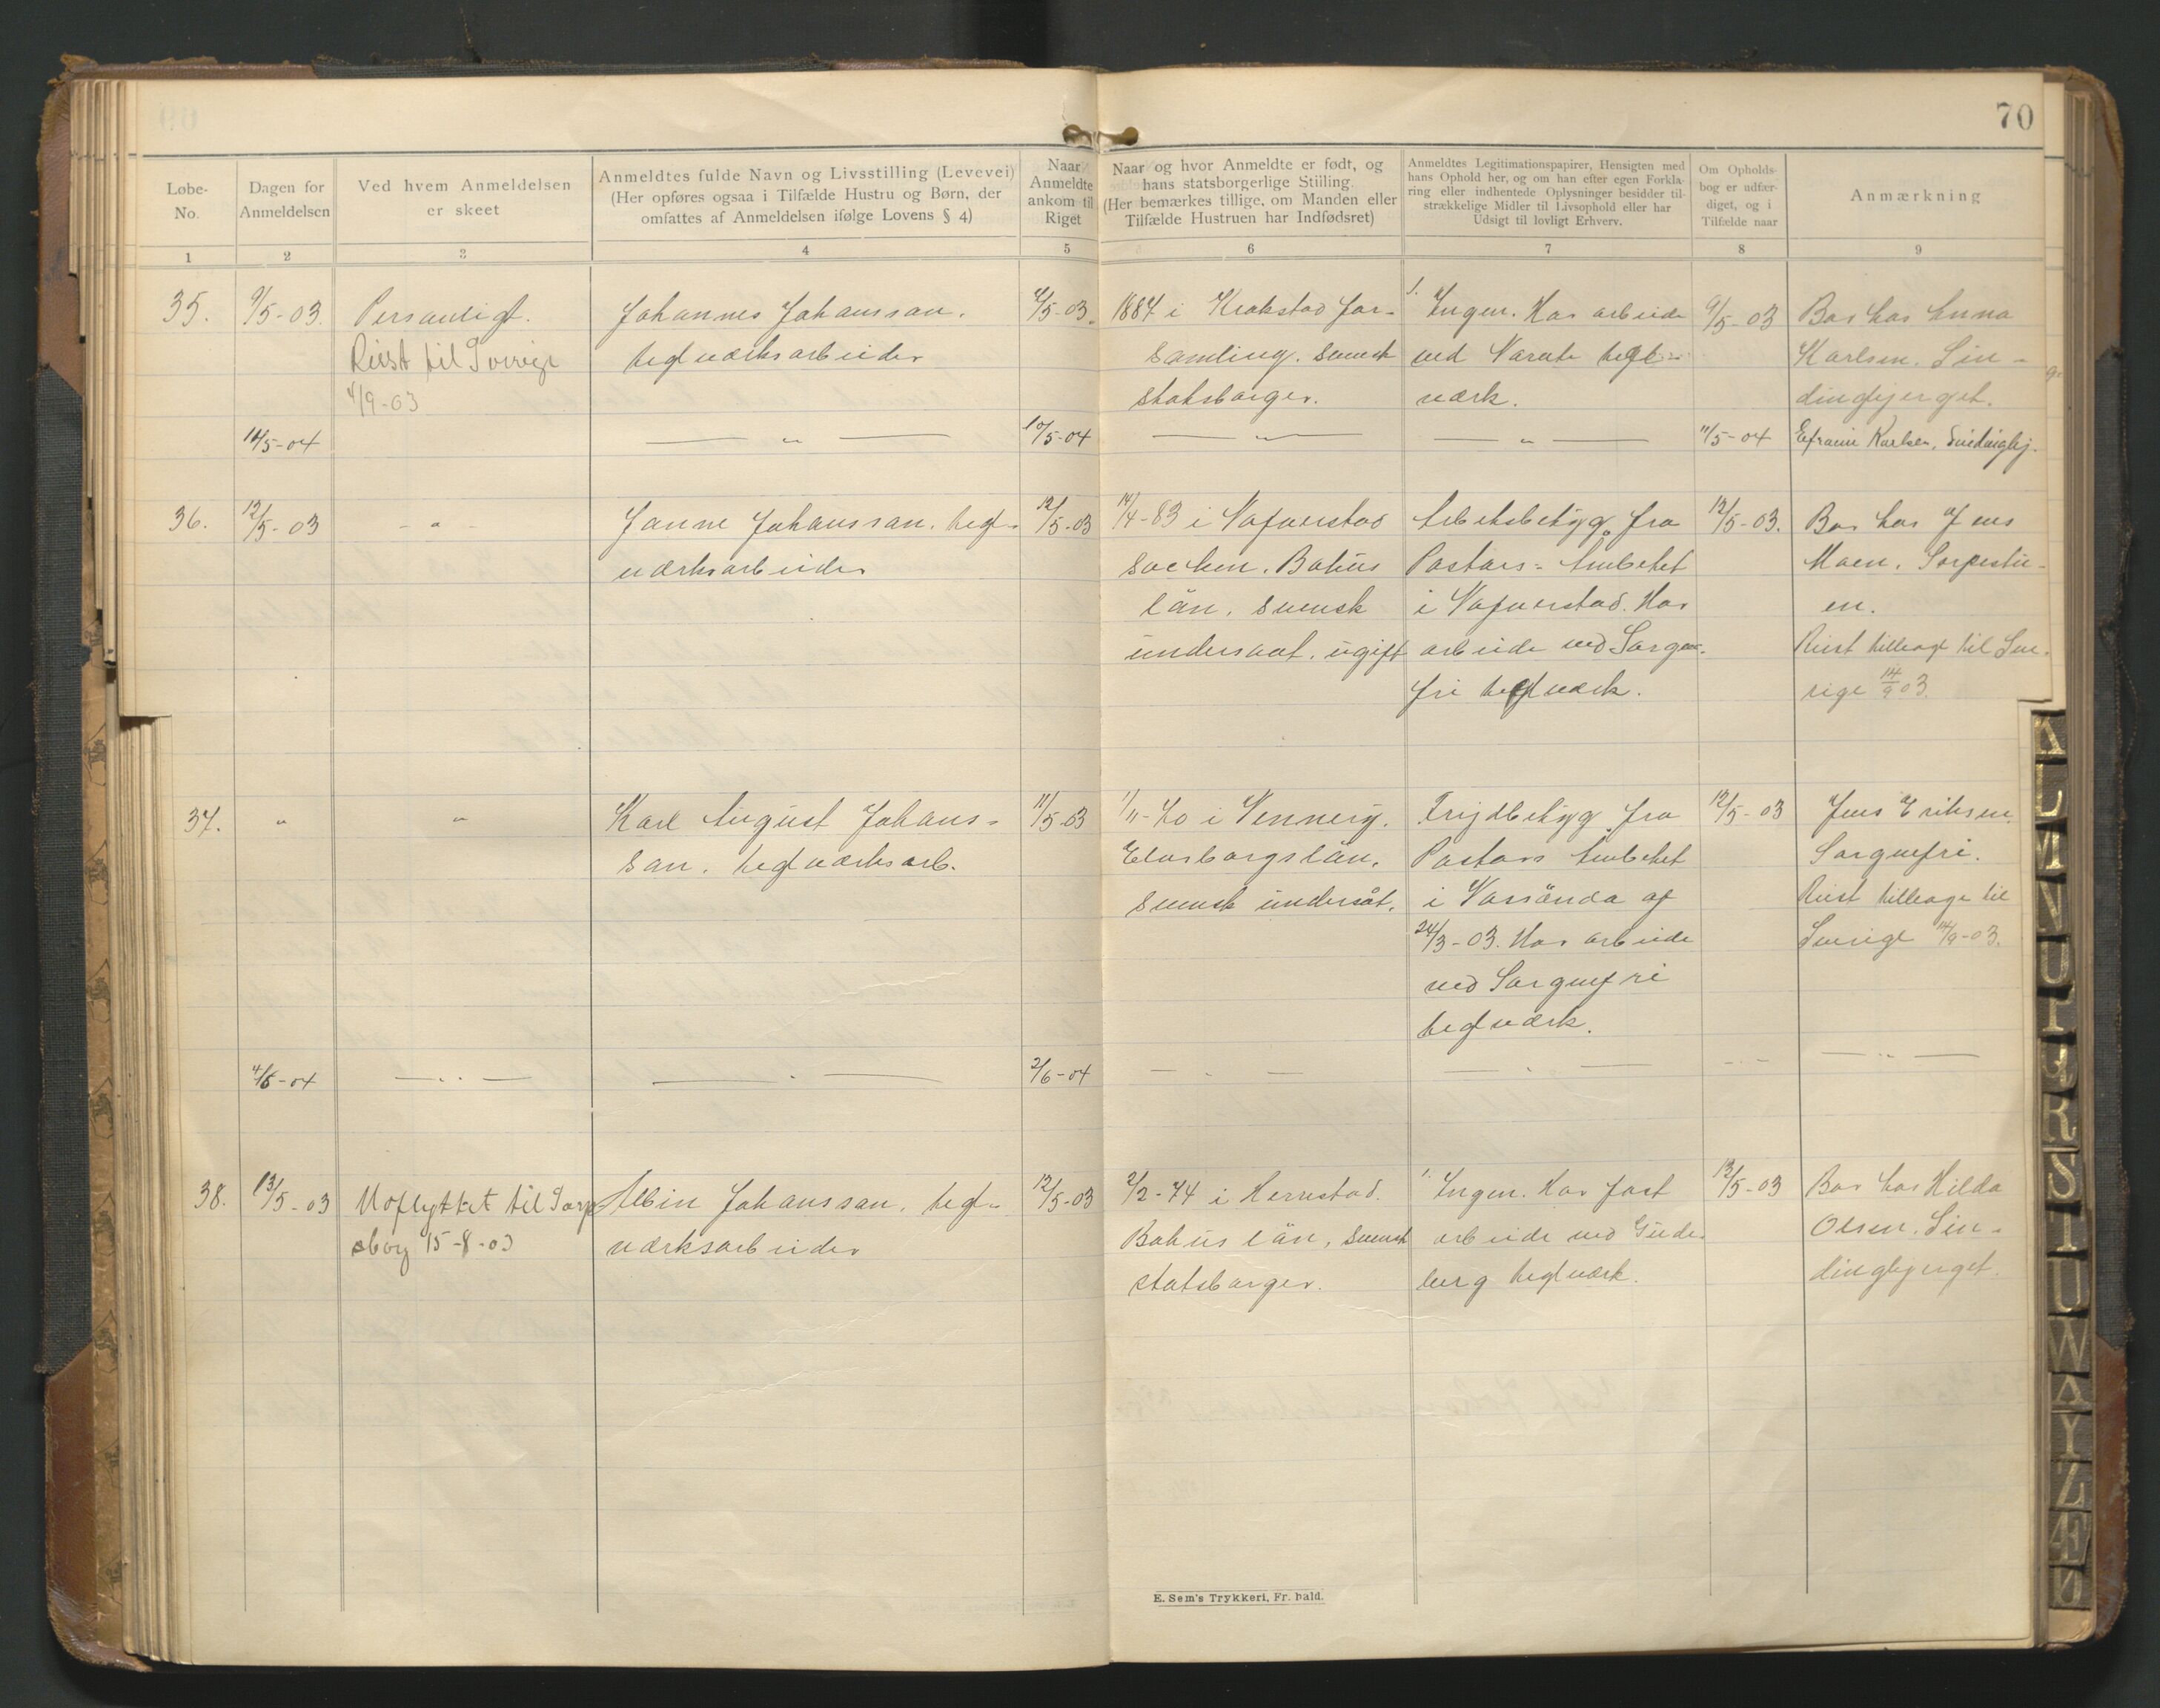 70
Løbe-
No.
Dagen for
Anmeldelsen
Ved hvem Anmeldelsen
er skeet
Anmeldtes fulde Navn og Livsstilling (Levevei)
(Her opføres ogsaa i Tilfælde Hustru og Børn, der
omfattes af Anmeldelsen ifølge Lovens § 4)
Naar
Anmeldte
ankom til
Riget
Naar og hvor Anmeldte er født, og
hans statsborgerlige Stilling.
(Her bemærkes tillige, om Manden eller
Tilfælde Hustruen har Indfødsret)
Anmeldtes Legitimationspapirer, Hensigten med
hans Ophold her, og om han efter egen Forkla-
ring eller indhentede Oplysninger besidder til-
strækkelige Midler til Livsophold eller har
Udsigt til lovligt Erhverv.
Om Opholds-
bog er udfær-
diget, og i
Tilfælde naar
Anmærkning
1 2 3 4 5 6 7 8 9
35.
9/5-03.
Personligt.
Reist til Sverige
4/9-03
Johannes Johansson.
teglværksarbeider
/5-03.
1884 i Krokstad for-
samling. svensk
statsborger.
1. Ingen. Har arbeide
ved tegl-
værk.
9/5-03
Bor hos Anna
Karlsen. Lin-
dingbjerget.
11/5-04
— " —
10/5-04
— " —
— " —
11/5-04
Efraim Karlsen,
36.
12/5-03
- " -
Janne Johansson. tegl-
værksarbeider
12/5-03
14/4-83 i Nafverstad
socken. Bohus
län. svensk
undersaat. ugift
Arbetsbetyg fra
Pastors-Ambetet
i Nafverstad. Har
arbeide ved Sorgen-
fri teglværk.
12/5-03.
Bor hos Jens
Moen. Torpestu-
en.
Reist tilbage til Sve-
rige 14/9 03.
37.
"
"
Karl August Johans-
son. teglværksarb.
11/5-03
1/11-40 i
Elvsborgslän.
svensk undersåt.
Frejdbetyg fra
Pastors Ambetet
i Vassända af
24/3-03. Har arbeide
ved Sorgnefri
teglværk.
12/5-03
Jens Eriksen.
Sorgnefri.
Reist tilbage til
Sverige 14/9-03.
4/6-04
— " —
— " —
2/6-04
— " —
— " —
- -
— " —
38.
13/5-03
Uoflyttet til Sarps-
borg 15-8-03
Albin Johansson. tegl-
værksarbeider
12/5-03
2/2-74 i Herrestad.
Bohus län, svensk
statsborger.
1. Ingen. Har fast
arbeide ved Gude-
berg teglværk.
13/5-03
Bor hos Hilda
Olsen. Lin-
dingbjerget.
E. Sem's Trykkeri, Fr. hald.
A
L
M
N
O
P
Q
R
S
T
U
W
A
Y
Z
Æ
Ø